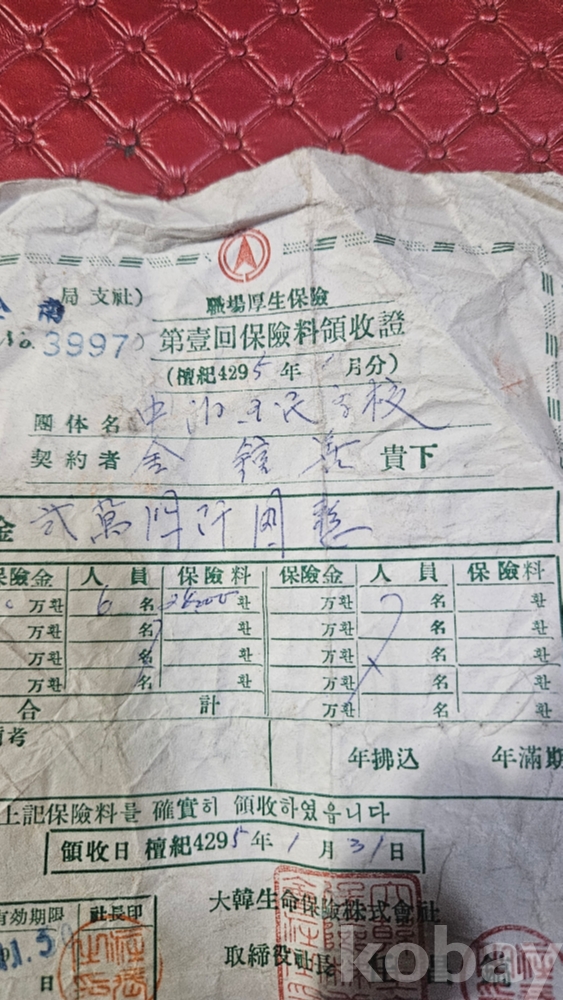 局 支社)
職場厚生保險
No. 3997)
第壹回保險料領收證
(檀紀4295年 1月分)
團体名 中 國民學校
契約者 金 鍾 貴下
金 弐萬四阡圜整
保險金 人員 保險料 保險金 人員 保險料
万환 6名 24000환 万환 名 환
万환 名 환 万환 名 환
万환 名 환 万환 名 환
万환 名 환 万환 名 환
合 計 万환 名 환
備考
年拂込 年滿期
上記保險料를 確實히 領收하였읍니다
領收日 檀紀4295年 1月 31日
有効期限 社長印
日
大韓生命保險株式會社
取締役社長
kobay